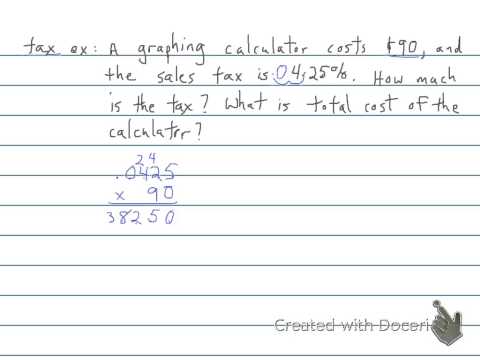 tax ex: A graphing calculator costs $90, and
the sales tax is .04.25%. How much
is the tax? What is total cost of the
calculator?
24
.0425
x 90
38250
Created with Doceri